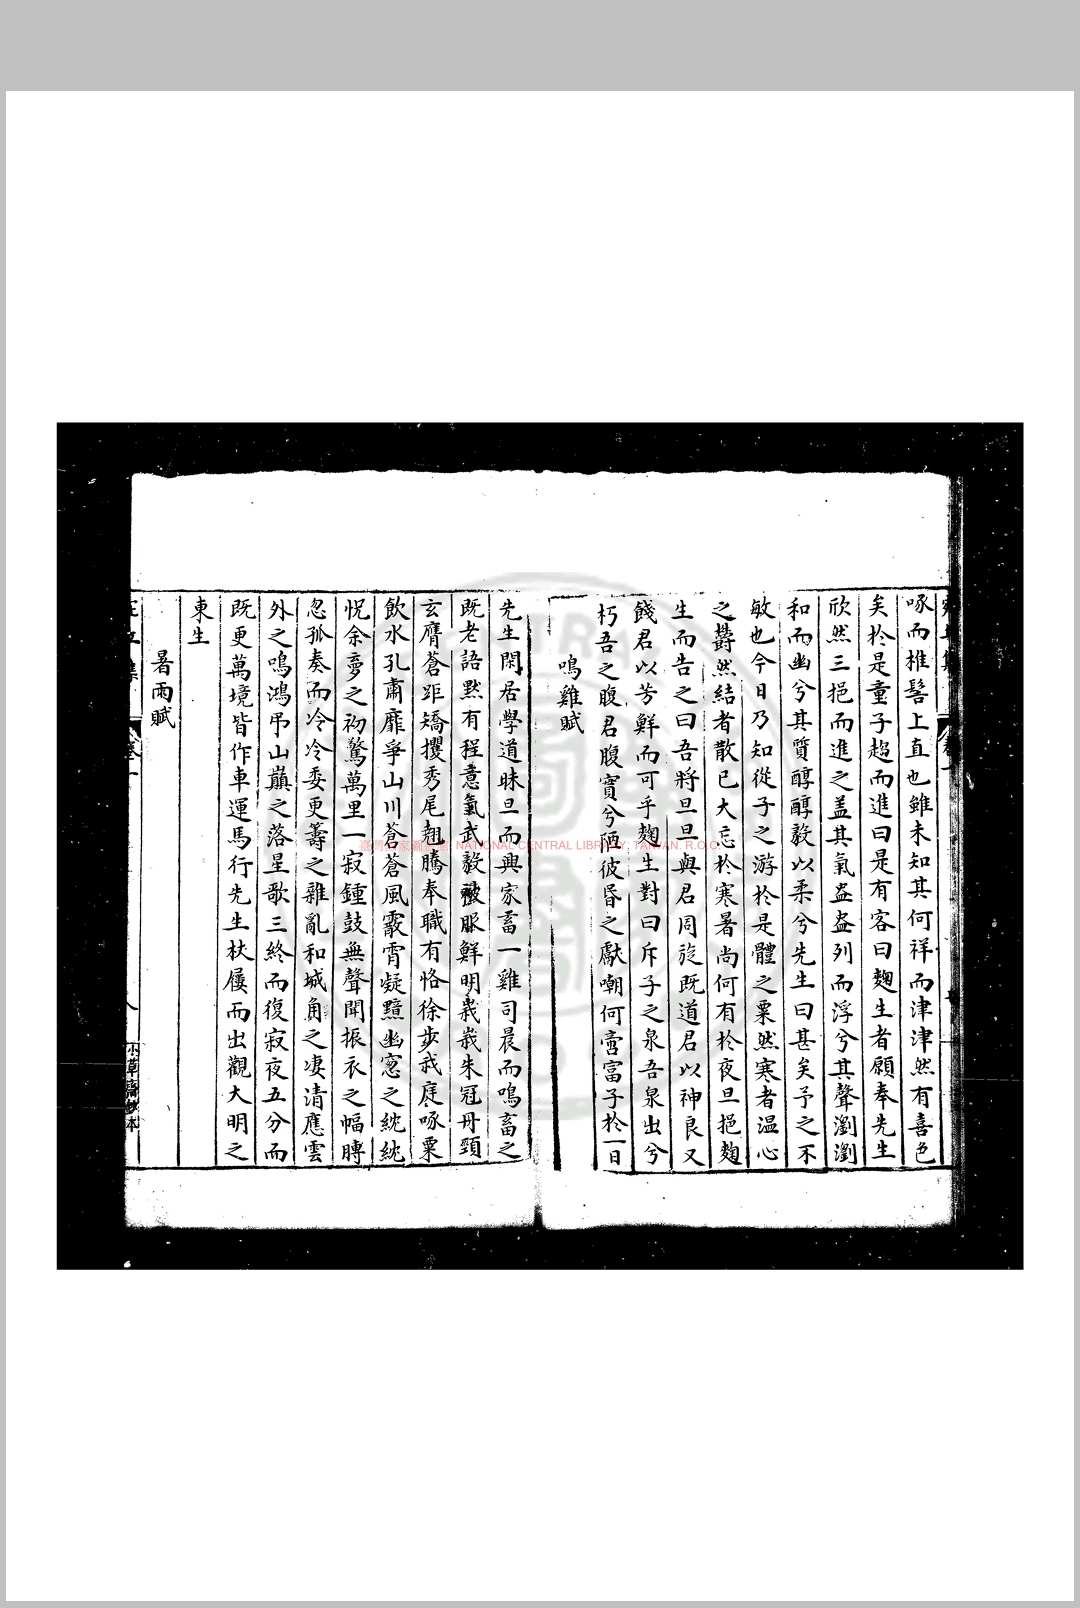 啄而椎髻上直也雖未知其何祥而津津然有喜色
矣於是童子趨而進曰是有客曰麴生者願奉先生
欣然三挹而進之盖其氣盎盎列而浮兮其聲瀏瀏
和而幽兮其質醇醇毅以柔兮先生曰甚矣予之不
敏也今日乃知從子之游於是體之粟然寒者温心
之欝然結者散已大忘於寒暑尚何有於夜旦挹麴
生而告之曰吾將旦旦與君周旋既道君以神良又
餞君以芳鮮而可乎麴生對曰斥子之泉吾泉出兮
朽吾之腹君腹實兮陋彼昏之厭嘲何啻富子於一日
鳴雞賦
先生閑居學道昧旦而興家畜一雞司晨而鳴畜之
既老語黙有程意氣武毅被服鮮明峩峩朱冠丹頸
玄膺蒼距矯攫秀尾翹騰奉職有恪徐步我庭啄粟
飲水孔肅靡爭山川蒼蒼風霰霄凝黯幽窓之統統
怳余夣之初驚萬里一寂鍾鼓無聲聞振衣之幅膊
忽孤奏而泠泠委更籌之雜亂和城角之凄清應雲
外之鳴鴻弔山巔之落星歌三終而復寂夜五分而
既更萬境皆作車運馬行先生杖屨而出觀大明之
東生
暑雨賦
卷一
八
小草齋鈔本
臺灣國家圖書館, NATIONAL CENTRAL LIBRARY, TAIWAN, R.O.C.